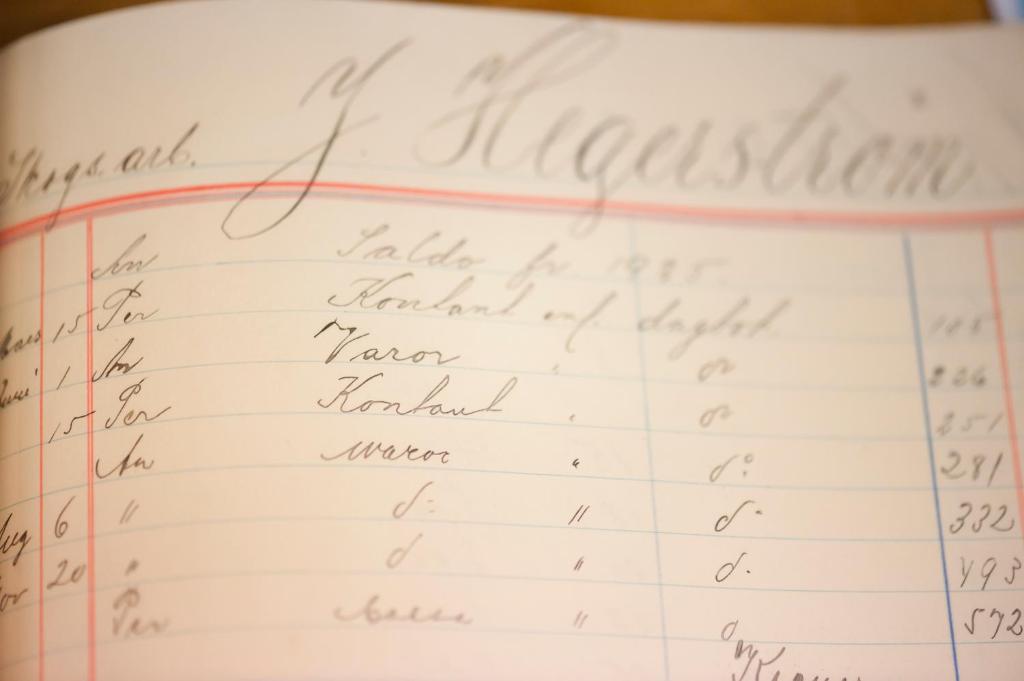 Skogs. arb. J. Hegerström
An Saldo fr 1925
15 Per Kontant enl. dagbok 105
Juni 1 An Varor " do 226
15 Per Kontant " do 251
An Waror " do 281
Aug 6 " do " do 332
20 " do " do 493
Per " do 572